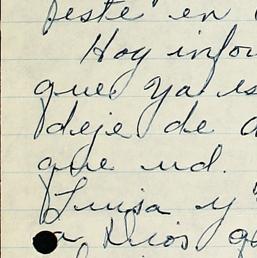 este en
Hoy infor
que ya es
deje de a
que ud.
Luisa y
a Dios qe